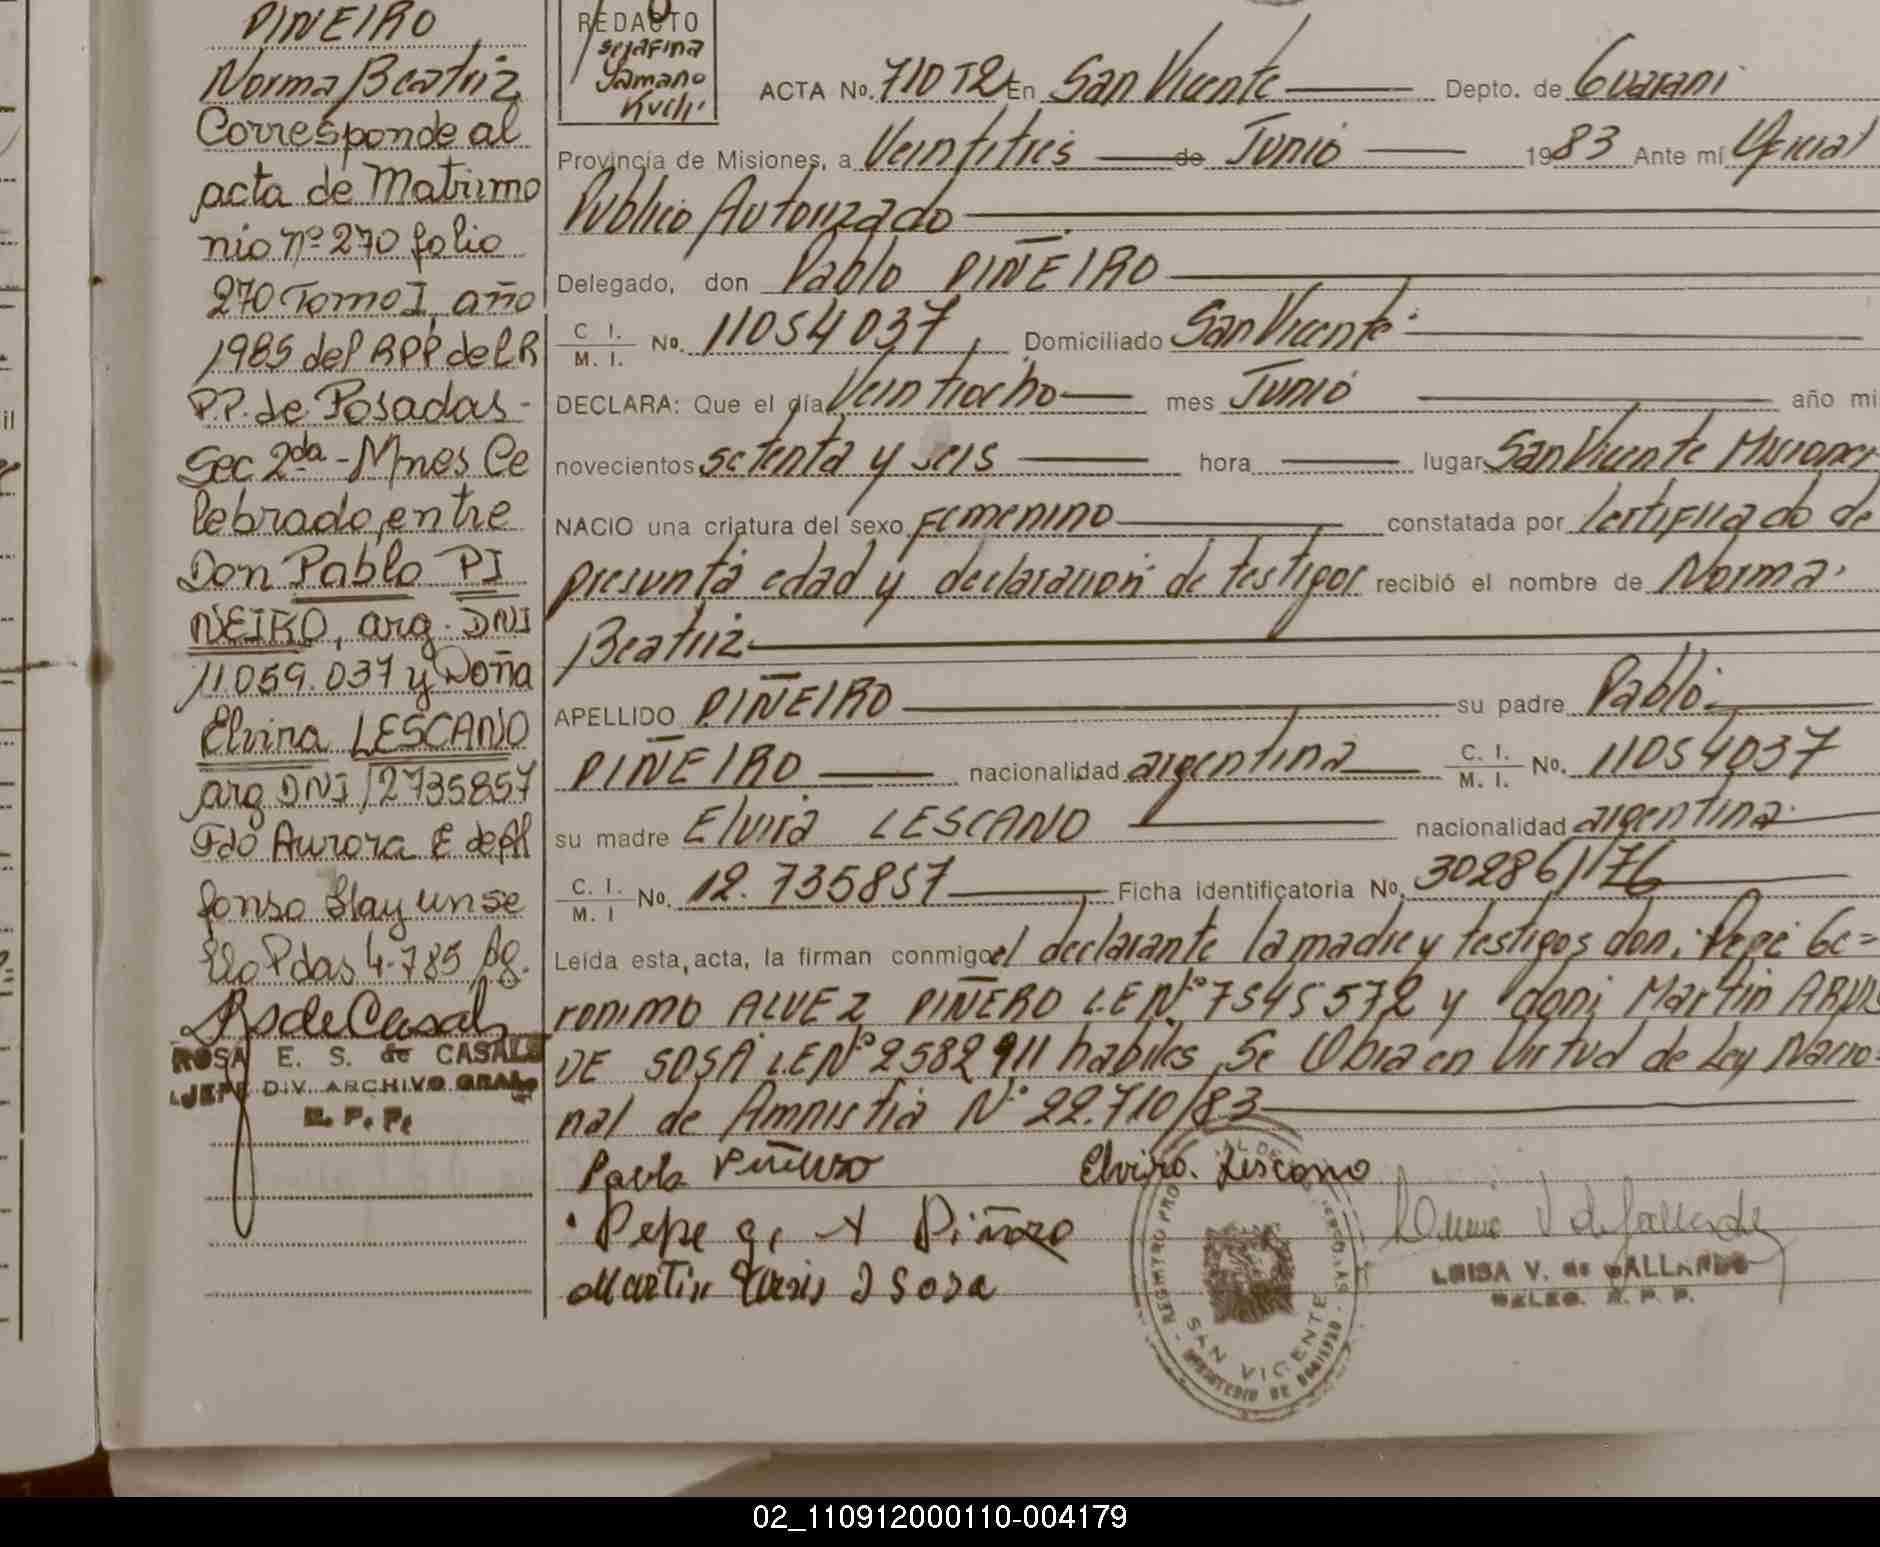 PIÑEIRO
Norma Beatriz
Corresponde al
acta de Matrimo
nio nº 270 folio
270 Tomo I, año
1985 del RPP del R
P.P. de Posadas-
Sec 2da - Mnes Ce
lebrado, entre
Don Pablo PI
ÑEIRO, arg. DNI
11.059.037 y Doña
Elvira LESCANO
arg DNI 12735857
Fdo Aurora E de Al
fonso Hay un se
llo Pdas 4-785
ROSA E. S. de CASALS
JEFE DIV. ARCHIVO GRAL
R. P. P.
REDACTO
serafina
Kuchi
ACTA No. 710 T2 En San Vicente Depto. de Guarani
Provincia de Misiones, a Veintitres de Junio 1983 Ante mí Oficial
Publico Autorizado
Delegado, don Pablo PIÑEIRO
C. I.
M. I. No. 11054037, Domiciliado San Vicente
DECLARA: Que el día Veintiocho mes Junio año mi
novecientos setenta y seis hora lugar San Vicente Misiones
NACIO una criatura del sexo Femenino constatada por Certificado de
presunta edad y declaracion de testigos recibió el nombre de Norma
Beatriz
APELLIDO PIÑEIRO su padre Pablo
PIÑEIRO nacionalidad argentina C. I.
M. I. No. 11054037
su madre Elvira LESCANO nacionalidad argentina
C. I.
M. I No. 12.735857 Ficha identificatoria No. 302861/76
Leída esta, acta, la firman conmigo el declarante la madre y testigos don: Pepe Ge=
ronimo ALVEZ PIÑERO L.E Nº 7545572 y don: Martin
DE SOSA L.E Nº 2582911 habiles, Se Obra en Virtud de Ley Nacio=
nal de Amnistia Nº 22.710/83
Pablo Piñeiro Elvira. Lescano
Pepe g. A Piñero
Martin D Sosa
LUISA V. de GALLARDO
DELEG. R. P. P.
SAN VICENTE
02_110912000110-004179